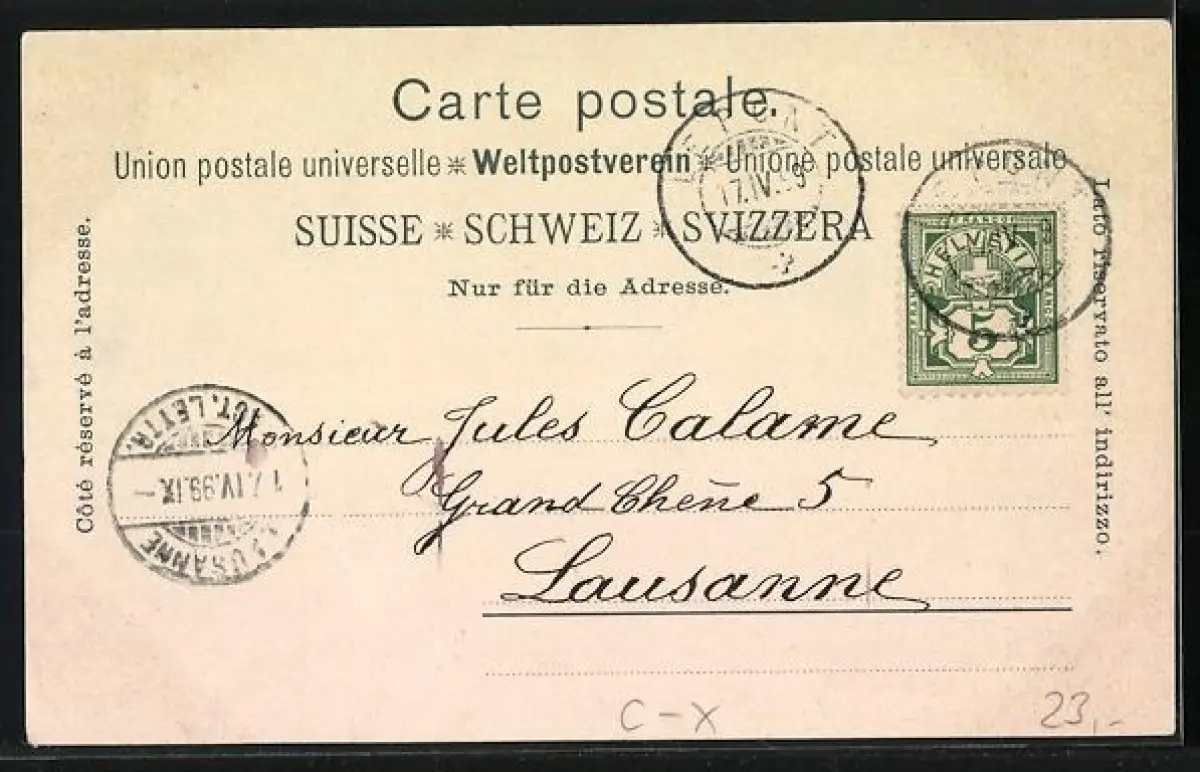 Carte postale.
Union postale universelle * Weltpostverein * Unione postale universale
SUISSE * SCHWEIZ * SVIZZERA
Nur für die Adresse.
Côté réservé à l'adresse.
Lato riservato all' indirizzo.
LE PONT
17.IV.99
HELVETIA
5
LETTR.
17.IV.99.IX.-
LAUSANNE
Monsieur Jules Calame
Grand Chêne 5
Lausanne
C-X
23,-